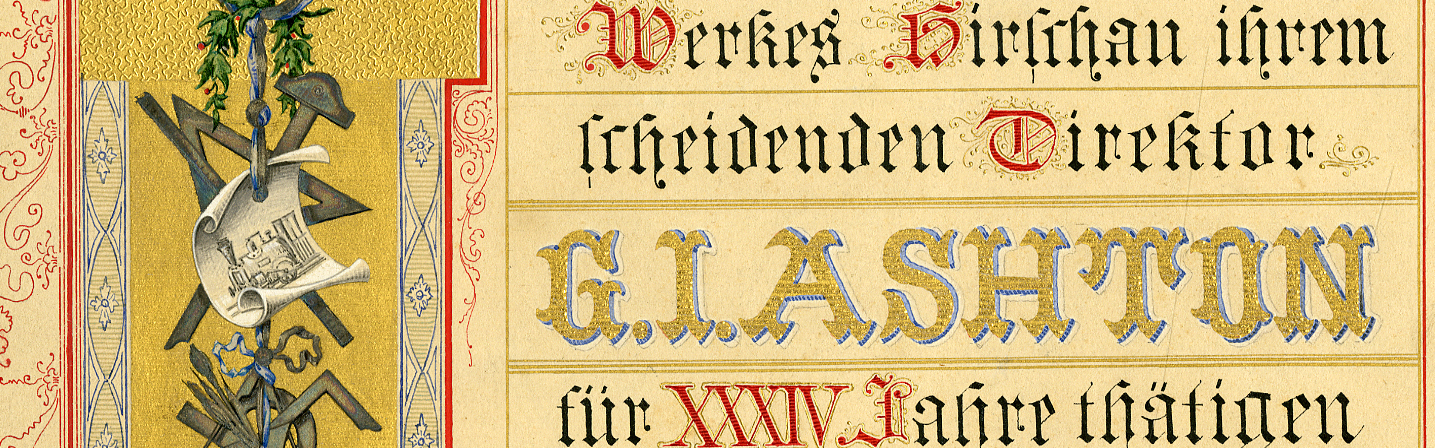 Werkes Hirschau ihrem
scheidenden Direktor
G.I.ASHTON
für XXXIV Jahre thätigen